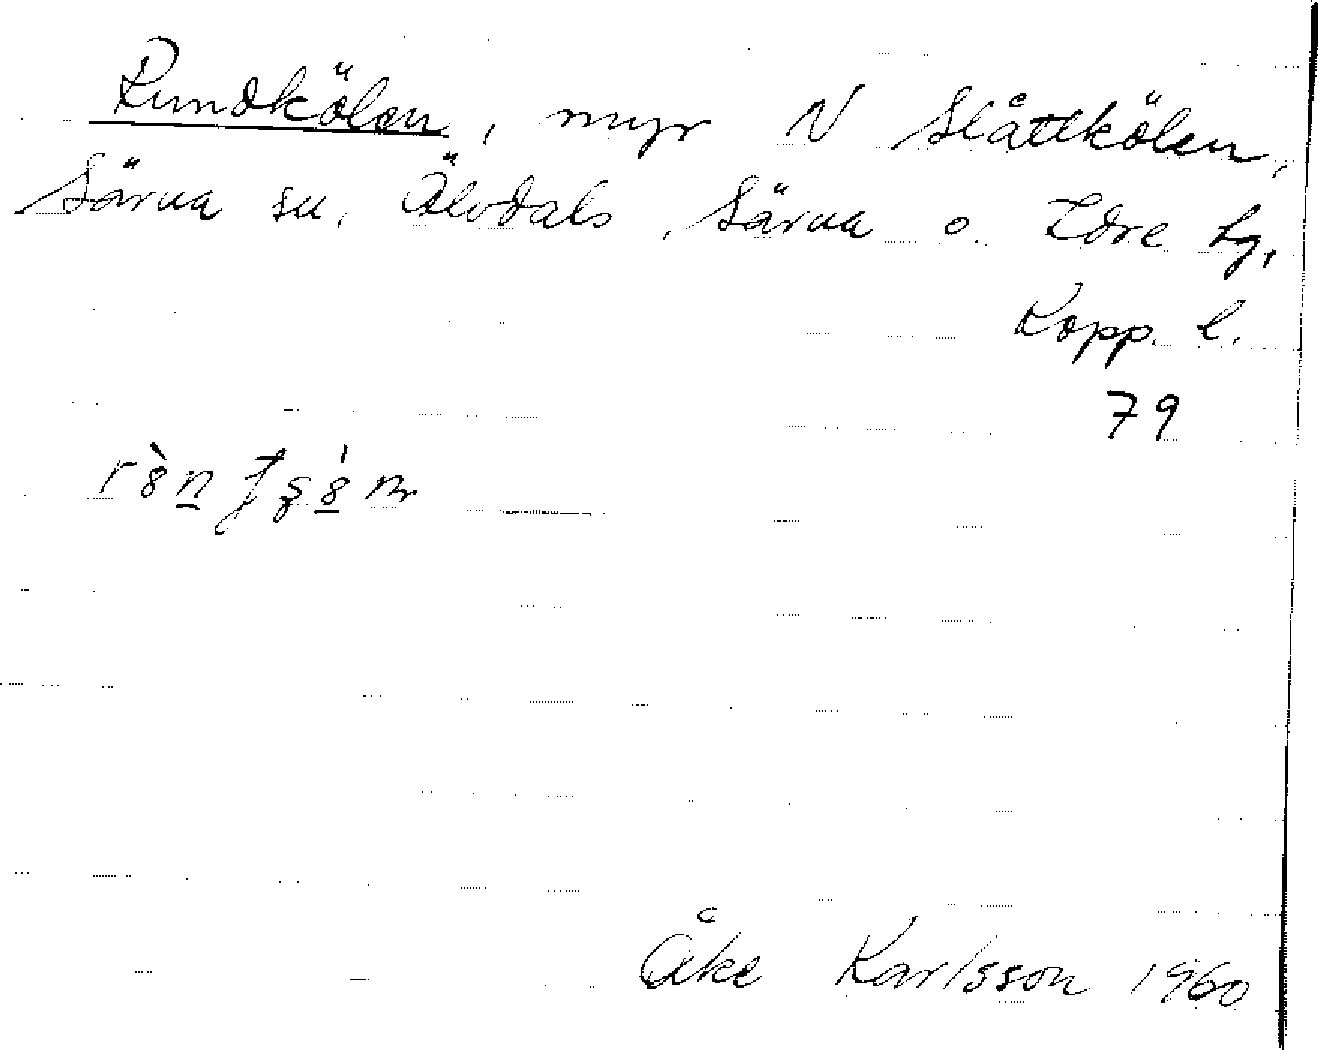 Rundkölen, myr N Slåttkölen,
Särna sn, Älvdals, Särna o. Idre tg,
Kopp. l.
79
Åke Karlsson 1960